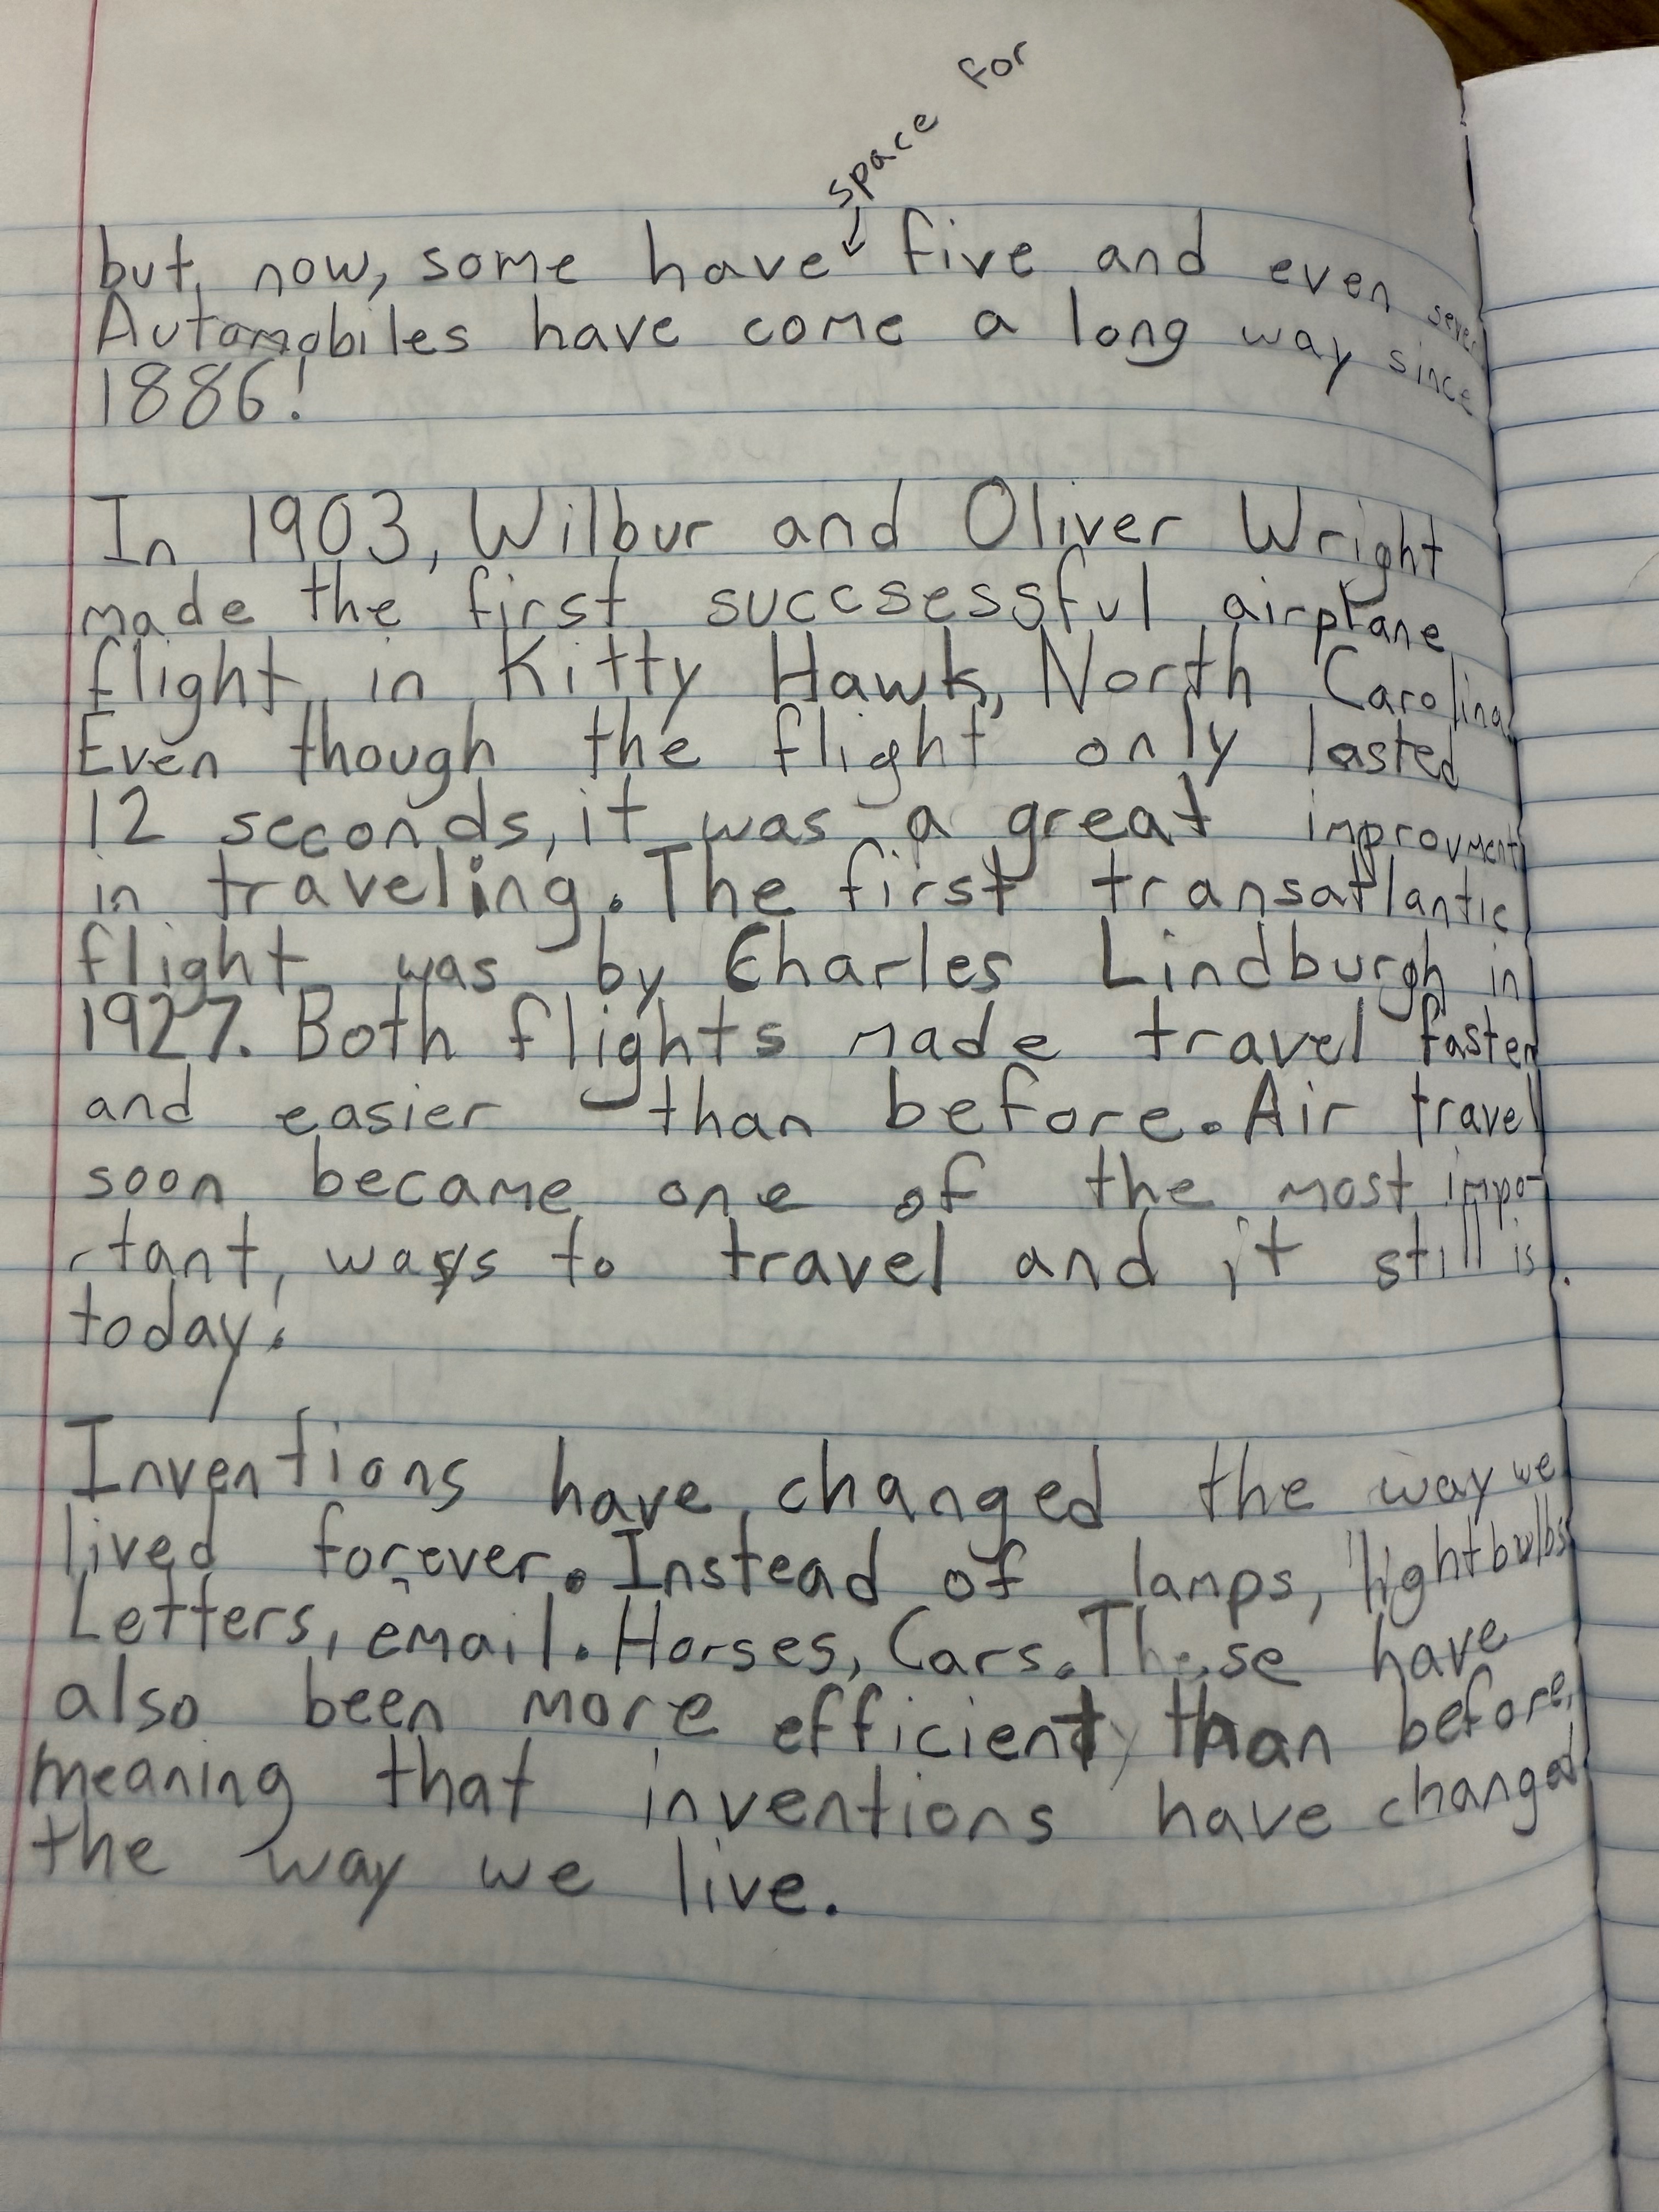 space for
but now, some have five and even seven
Automobiles have come a long way since
1886!
In 1903, Wilbur and Oliver Wright
made the first succsessful airplane
flight in Kitty Hawk, North Carolina
Even though the flight only lasted
12 seconds, it was a great improvment
in traveling. The first transatlantic
flight was by Charles Lindburgh in
1927. Both flights made travel faster
and easier than before. Air travel
soon became one of the most impo-
rtant ways to travel and it still is.
today.
Inventions have changed the way we
lived forever. Instead of lamps, lightbulbs
Letters, email. Horses, Cars. These have
also been more efficient than before,
meaning that inventions have changed
the way we live.